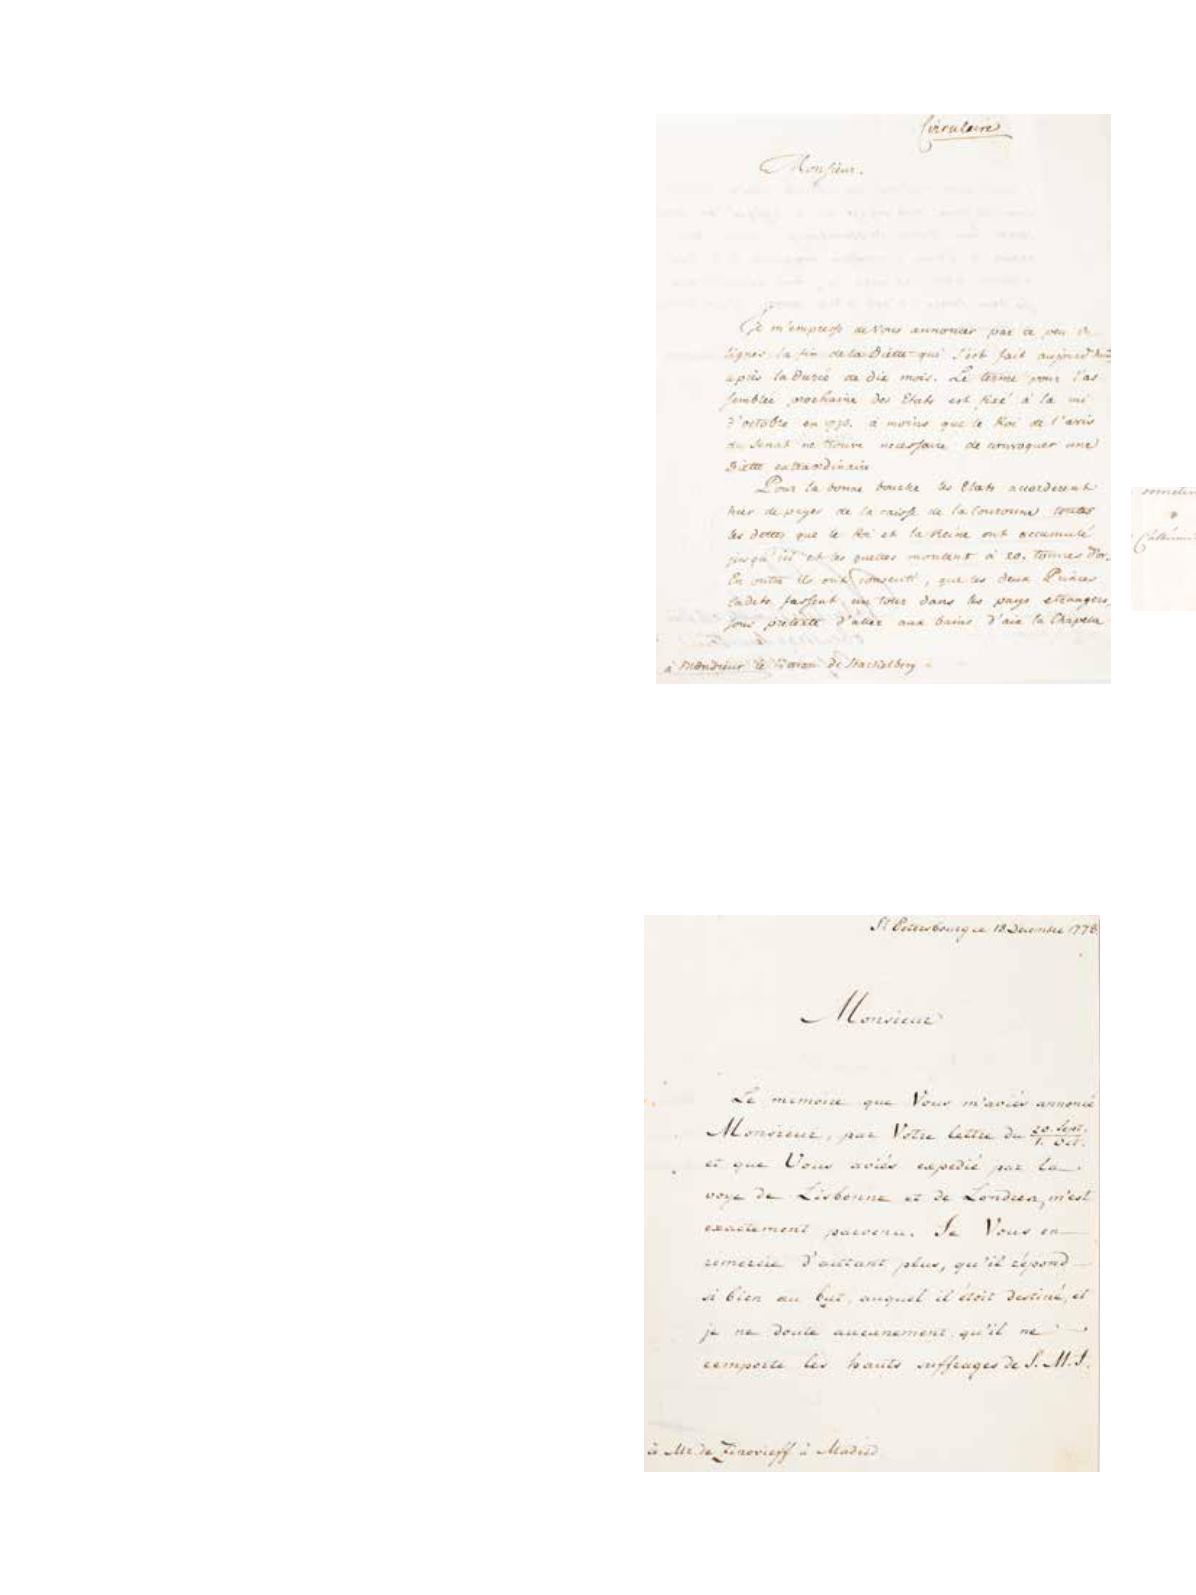 Circulaire
Monsieur.
Je m'empresse de Vous annoncer par ce peu de
lignes la fin de la Diette qui s'est fait aujourd'hui
après la Durée de dix mois. Le terme pour l'as
semblée prochaine des Etats est fixé à la mi
d'octobre en à moins que le Roi de l'avis
du Senat ne trouve necessaire de convoquer une
Diette extraordinaire
Pour la bonne bouche les Etats accorderent
hier de payer de la caisse de la Couronne toutes
les dettes que le Roi et la Reine ont accumulé
jusqu'ici et les quelles montent à 20. tonnes d'or.
En outre ils ont consenti, que les deux Princes
Cadets fassent un tour dans les pays etrangers,
sous pretexte d'aller aux bains d'aix la Chapelle
à Monsieur le Baron de Stackelberg
St Petersbourg ce 18. Decembre 1778.
Monsieur
Le mémoire que Vous m'aviés annoncé
Monsieur, par Votre lettre du 20. Sept./1. Oct.
et que Vous aviés expedié par la
voye de Lisbonne et de Londres, m'est
exactement parvenu. Je Vous en
remercie d'autant plus, qu'il répond
si bien au but, auquel il étoit destiné, et
je ne doute aucunement qu'il ne
remporte les hauts suffrages de S. M. I.
à Mr. de Zinovieff à Madrid